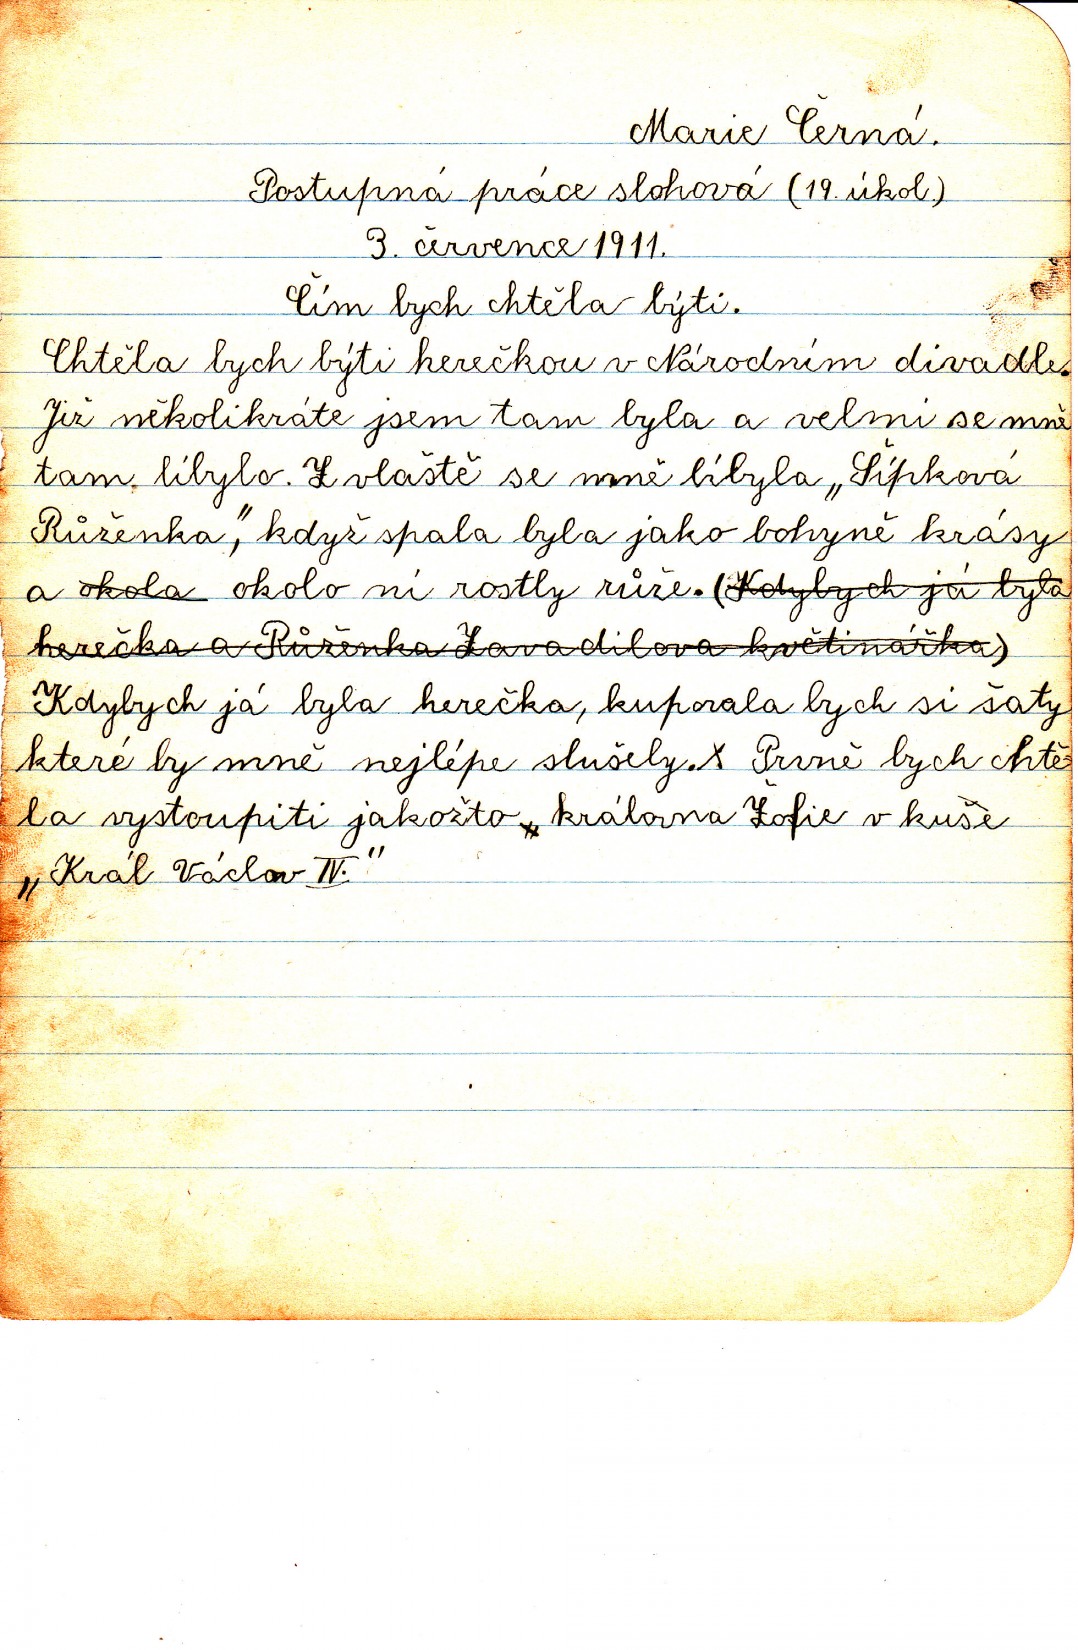 Marie Černá.
Postupná práce slohová (19. úkol.)
3. července 1911.
Čím bych chtěla býti.
Chtěla bych býti herečkou v Národním divadle.
Již několikráte jsem tam byla a velmi se mně
tam líbylo. Zvlaště se mně líbyla „Šípková
Růženka“, když spala byla jako bohyně krásy
a okola okolo ní rostly růže. (Kdybych já byla
herečka a Růženka Zavadilova květinářka)
Kdybych já byla herečka, kupovala bych si šaty
které by mně nejlépe slušely. X Prvně bych chtě-
la vystoupiti jakožto královna Žofie v kuše
„Král Václav IV.“